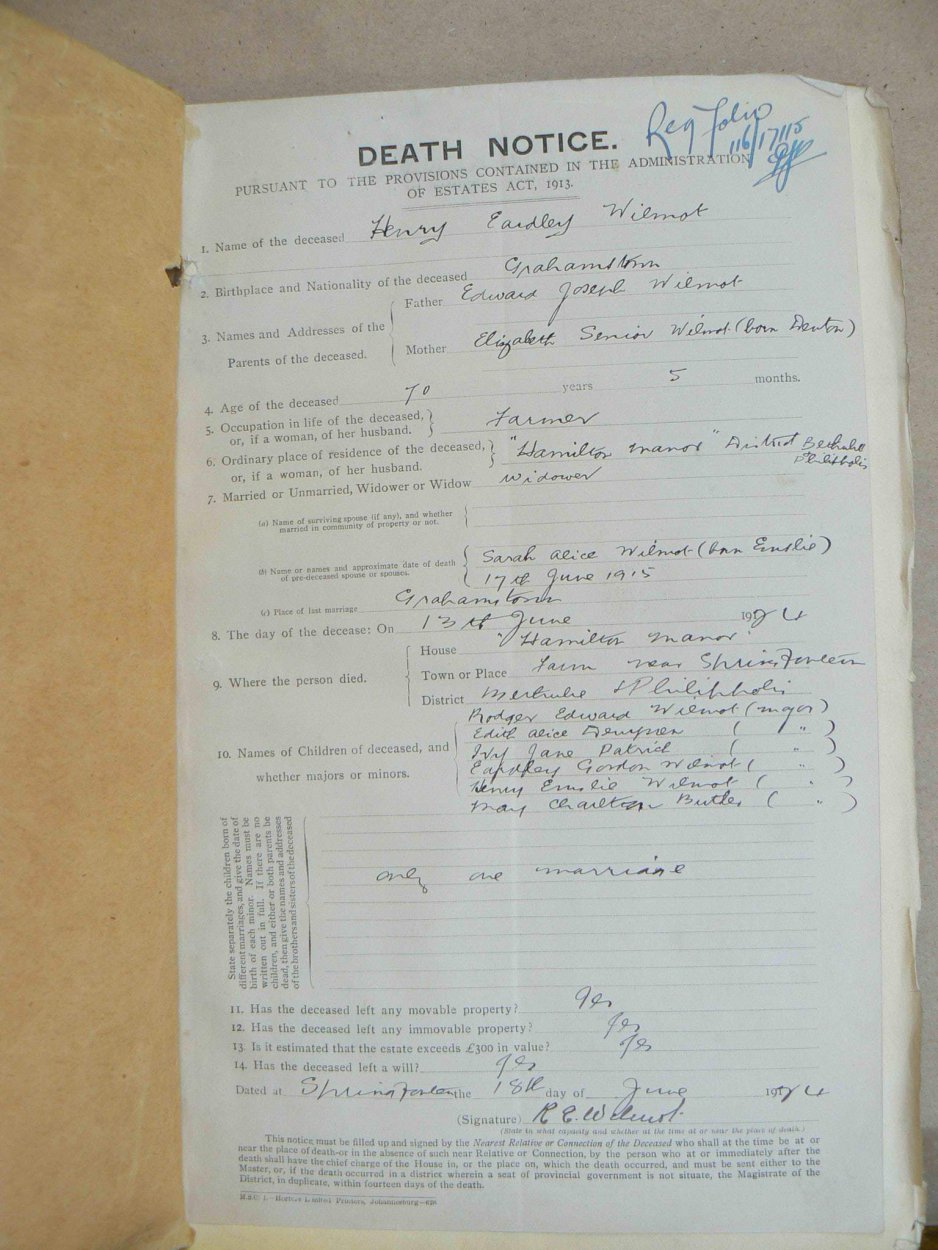 Reg Folio
116/17115
DEATH NOTICE.
PURSUANT TO THE PROVISIONS CONTAINED IN THE ADMINISTRATION
OF ESTATES ACT, 1913.
1. Name of the deceased Henry Eardley Wilmot
2. Birthplace and Nationality of the deceased Grahamstown
3. Names and Addresses of the Parents of the deceased.
Father Edward Joseph Wilmot
Mother Elizabeth Senior Wilmot (born Denton)
4. Age of the deceased 70 years 5 months.
5. Occupation in life of the deceased, or, if a woman, of her husband. Farmer
6. Ordinary place of residence of the deceased, or, if a woman, of her husband. "Hamilton Manor" District Bethulie
Philippolis
7. Married or Unmarried, Widower or Widow Widower
(a) Name of surviving spouse (if any), and whether married in community of property or not.
(b) Name or names and approximate date of death of pre-deceased spouse or spouses. Sarah Alice Wilmot (born Emslie)
17th June 1915
(c) Place of last marriage Grahamstown
8. The day of the decease: On 13th June 1924
9. Where the person died.
House "Hamilton Manor"
Town or Place Farm near Springfontein
District Bethulie & Philippolis
10. Names of Children of deceased, and whether majors or minors.
Rodger Edward Wilmot (major)
Edith Alice Dempsen ( " )
Ivy Jane Patrick ( " )
Eardley Gordon Wilmot ( " )
Henry Emslie Wilmot ( " )
May Charlton Butler ( " )
State separately the children born of
different marriages, and give the date of
birth of each minor. Names must be
written out in full. If there are no
children, and either or both parents be
dead, then give the names and addresses
of the brothers and sisters of the deceased
only one marriage
11. Has the deceased left any movable property? Yes
12. Has the deceased left any immovable property? Yes
13. Is it estimated that the estate exceeds £300 in value? Yes
14. Has the deceased left a will? Yes
Dated at Springfontein the 18th day of June 1924
(Signature) R E. Wilmot
(State in what capacity and whether at the time at or near the place of death.)
This notice must be filled up and signed by the Nearest Relative or Connection of the Deceased who shall at the time be at or
near the place of death—or in the absence of such near Relative or Connection, by the person who at or immediately after the
death shall have the chief charge of the House in, or the place on, which the death occurred, and must be sent either to the
Master, or, if the death occurred in a district wherein a seat of provincial government is not situate, the Magistrate of the
District, in duplicate, within fourteen days of the death.
Hortors Limited Printers, Johannesburg